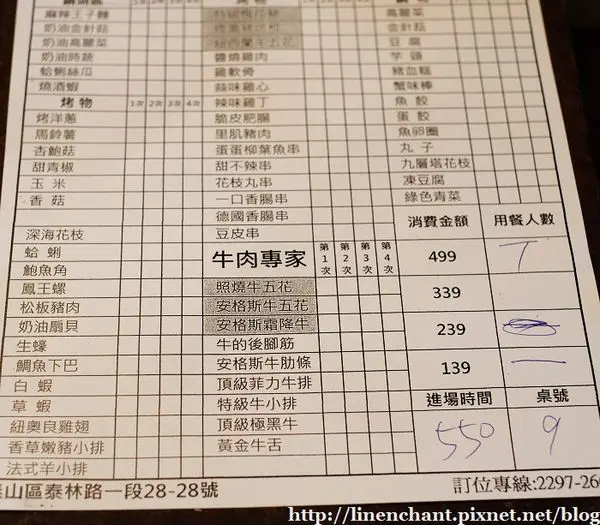 麻辣王子麵
奶油金針菇
奶油高麗菜
奶油時蔬
蛤蜊絲瓜
燒酒蝦
烤物 1次 2次 3次 4次
烤洋蔥
馬鈴薯
杏鮑菇
甜青椒
玉米
香菇
深海花枝
蛤蜊
鮑魚角
鳳王螺
松板豬肉
奶油扇貝
生蠔
鯛魚下巴
白蝦
草蝦
紐奧良雞翅
香草嫩豬小排
法式羊小排
鹽燒雞肉
雞軟骨
蒜味雞心
辣味雞丁
脆皮肥腸
里肌豬肉
蛋蛋柳葉魚串
甜不辣串
花枝丸串
一口香腸串
德國香腸串
豆皮串
牛肉專家 第1次 第2次 第3次 第4次
照燒牛五花
安格斯牛五花
安格斯霜降牛
牛的後腳筋
安格斯牛肋條
頂級菲力牛排
特級牛小排
頂級極黑牛
黃金牛舌
高麗菜
金針菇
豆腐
芋頭
豬血糕
蟹味棒
魚餃
蛋餃
魚卵圈
丸子
九層塔花枝
凍豆腐
綠色青菜
消費金額 用餐人數
499
339
239
139 一
進場時間 桌號
550 9
山區泰林路一段28-28號
訂位專線:2297-26
http://linenchant.pixnet.net/blog